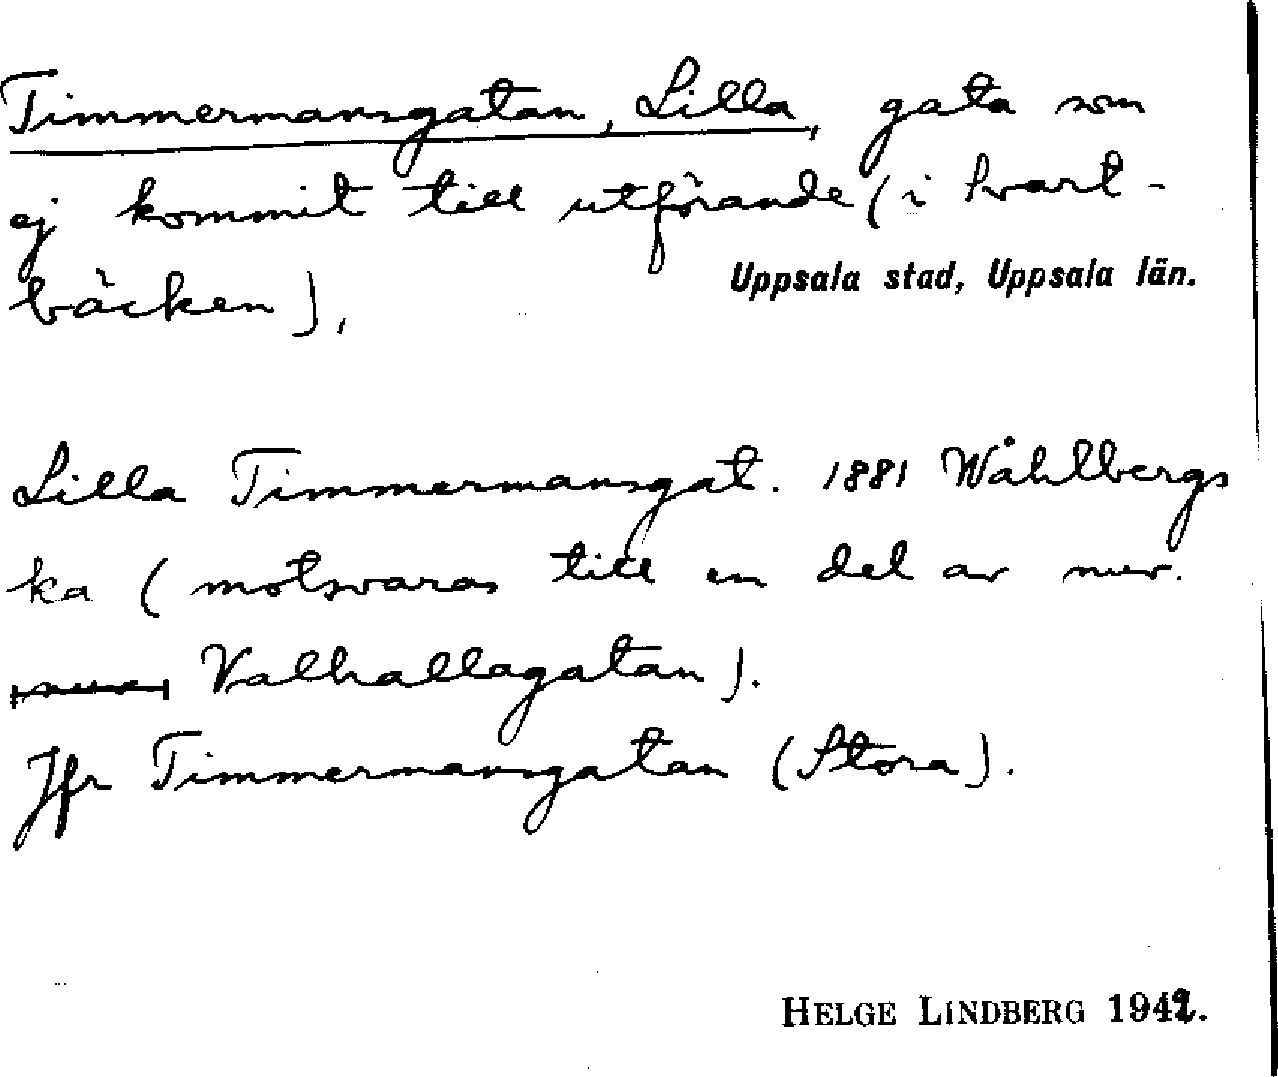 Timmermansgatan, Lilla, gata som
ej kommit till utförande (i Svart-
bäcken),
Uppsala stad, Uppsala län.
Lilla Timmermansgat. 1881 Wåhlbergs
ka (motsvaras till en del av nuv.
nuv. Valhallagatan).
Jfr Timmermansgatan (Stora).
HELGE LINDBERG 1942.